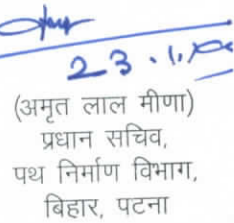 23.1.
(अमृत लाल मीणा)
प्रधान सचिव,
पथ निर्माण विभाग,
बिहार, पटना